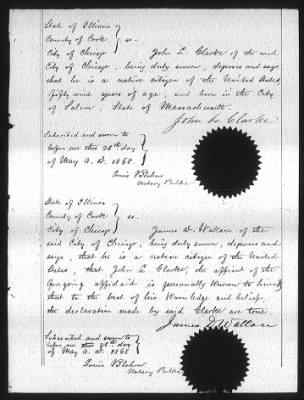 State of Illinois
County of Cook } ss.
City of Chicago
John L Clarke of the said
City of Chicago, being duly sworn, deposes and says
that he is a native citizen of the United States
fifty nine years of age, and born in the City
of Salem, State of Massachusetts.
John L. Clarke
Subscribed and sworn to
before me this 28th day
of May A.D. 1868.
Notary Public
State of Illinois
County of Cook } ss.
City of Chicago
James D. Wallace of the
said City of Chicago, being duly sworn, deposes and
says, that he is a native citizen of the United
States, that John L Clarke, the affiant of the
foregoing affidavit is personally known to him &
that to the best of his Knowledge and belief,
the declaration made by said Clarke are true.
James D Wallace
Subscribed and sworn to
before me this 28th day
of May A.D. 1868
Notary Public